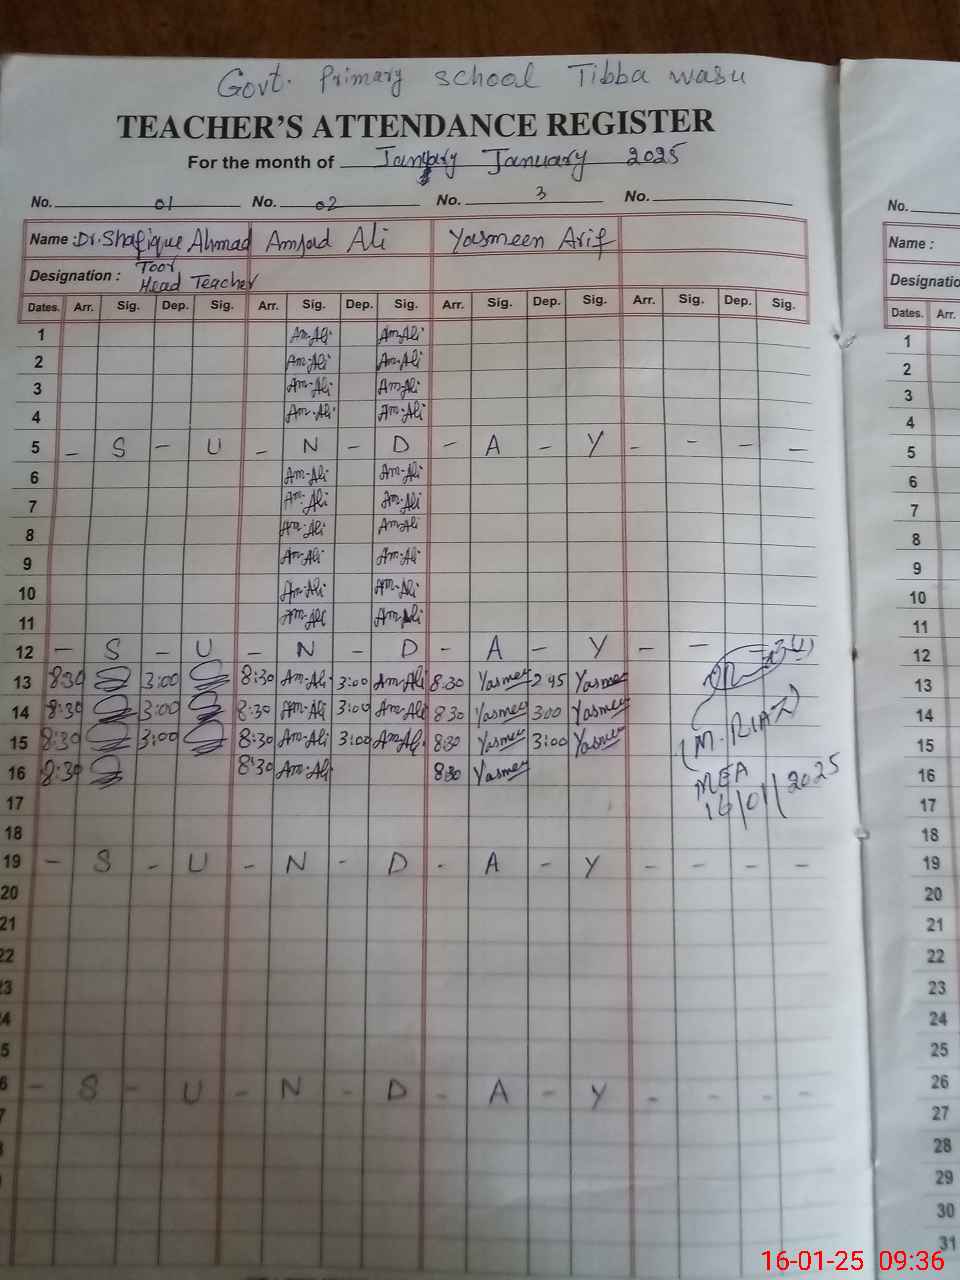 Govt. Primary school Tibba wasu
TEACHER'S ATTENDANCE REGISTER
For the month of January January 2025
No. 01 No. 02 No. 3 No.
Name : Dr. Shafique Ahmad Amjad Ali Yasmeen Arif
Toor
Designation : Head Teacher
Dates. Arr. Sig. Dep. Sig. Arr. Sig. Dep. Sig. Arr. Sig. Dep. Sig. Arr. Sig. Dep. Sig.
1 Am-Ali Am-Ali
2 Am-Ali Am-Ali
3 Am-Ali Am-Ali
4 Am-Ali Am-Ali
5 - S - U - N - D - A - Y - - - -
6 Am-Ali Am-Ali
7 Am-Ali Am-Ali
8 Am-Ali Am-Ali
9 Am-Ali Am-Ali
10 Am-Ali Am-Ali
11 Am-Ali Am-Ali
12 - S - U - N - D - A - Y - -
13 8:30 3:00 8:30 Am-Ali 3:00 Am-Ali 8:30 Yasmeen 2:45 Yasmeen
14 8:30 3:00 8:30 Am-Ali 3:00 Am-Ali 8:30 Yasmeen 3:00 Yasmeen
15 8:30 3:00 8:30 Am-Ali 3:00 Am-Ali 8:30 Yasmeen 3:00 Yasmeen
M. RIAZ
16 8:30 8:30 Am-Ali 8:30 Yasmeen
MEA
16/01/2025
17
18
19 - S - U - N - D - A - Y - - - -
20
21
22
23
4
5
6 - S - U - N - D - A - Y - - - -
7
No.
Name :
Designatio
Dates. Arr.
1
2
3
4
5
6
7
8
9
10
11
12
13
14
15
16
17
18
19
20
21
22
23
24
25
26
27
28
29
30
31
16-01-25 09:36